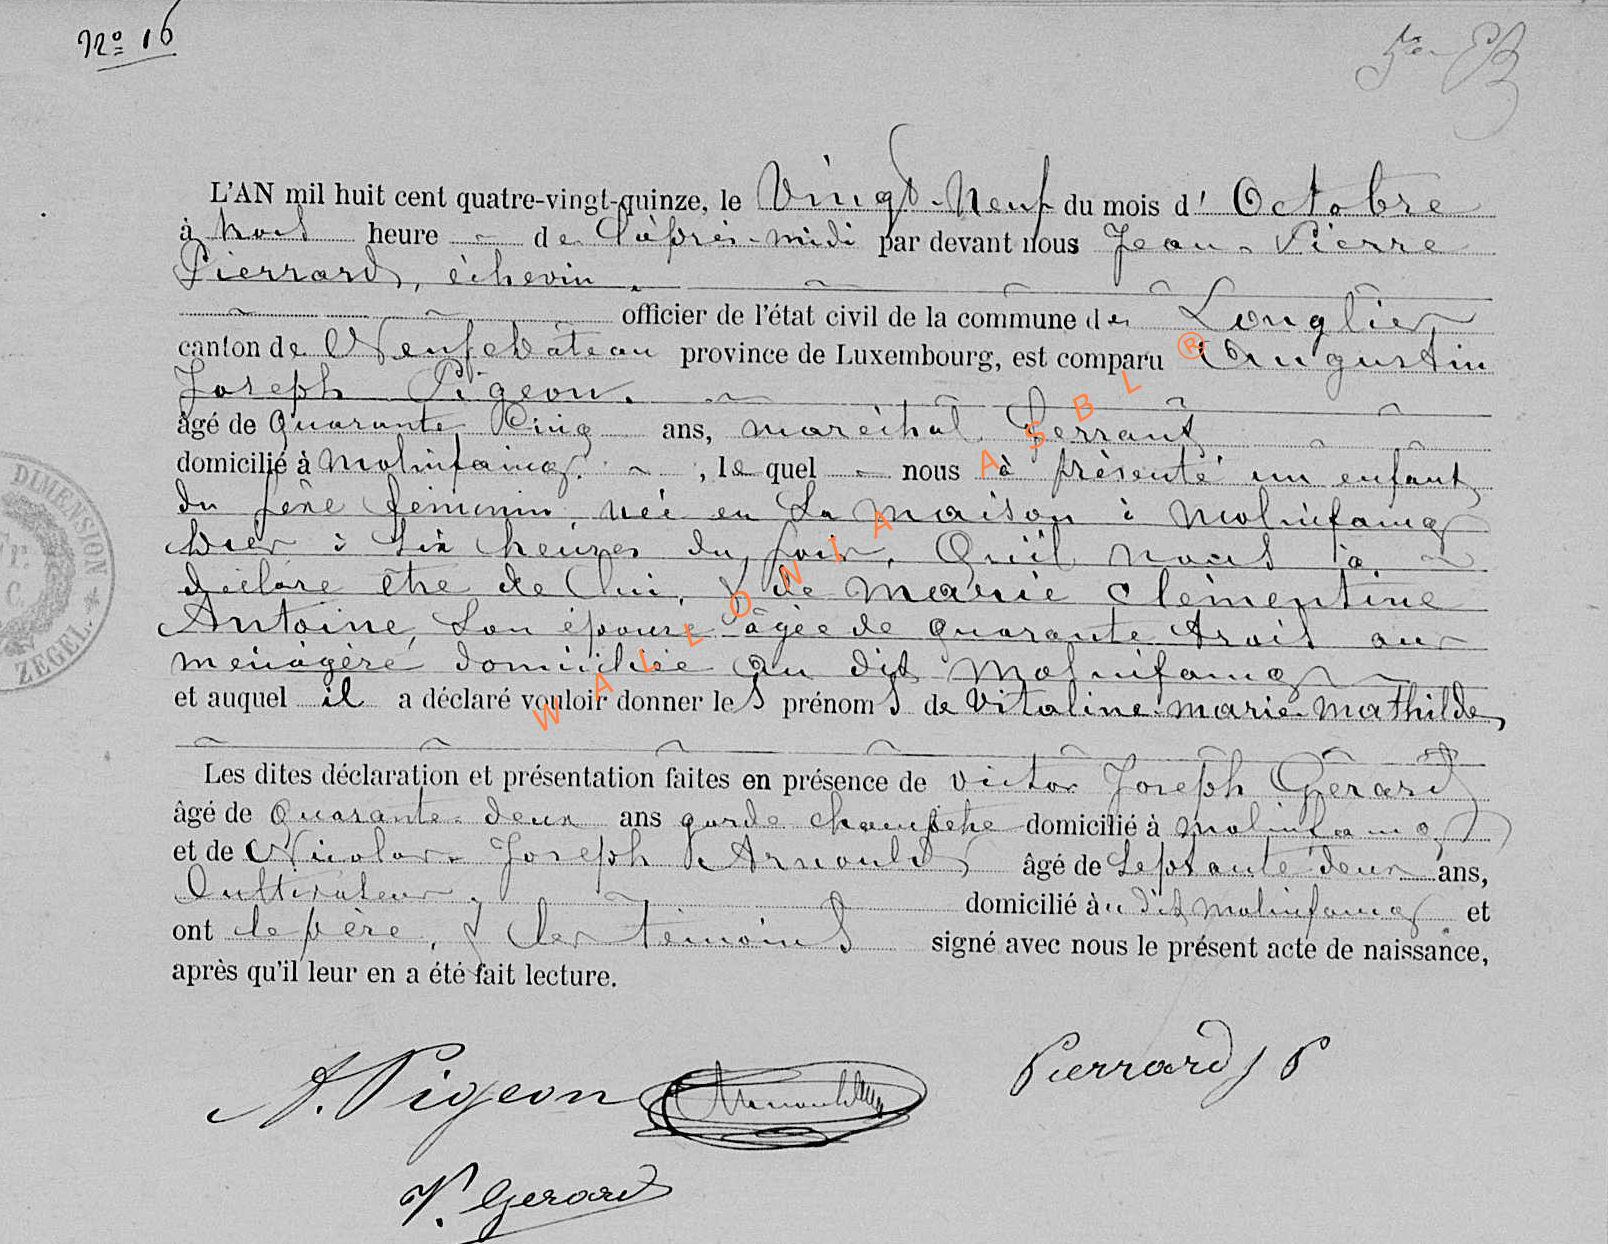 No 16
L'AN mil huit cent quatre-vingt-quinze, le Vingt-Neuf du mois d' Octobre
à trois heure de l'après-midi par devant nous Jean-Pierre
Pierrard, échevin
officier de l'état civil de la commune de Longlier
canton de Neufchâteau province de Luxembourg, est comparu Augustin
Joseph Pigeon.
âgé de Quarante Cinq ans, maréchal ferrant
domicilié à Molinfaing, le quel nous à présenté un enfant
du sexe féminin, née en sa maison à Molinfaing
hier à six heures du soir, Qu'il nous à
déclare être de lui, & de Marie Clémentine
Antoine, son épouse âgée de quarante trois ans
ménagère domiciliée au dit Molinfaing
et auquel il a déclaré vouloir donner les prénoms de Vitaline-Marie-Mathilde,
Les dites déclaration et présentation faites en présence de Victor Joseph Gérard
âgé de Quarante-deux ans garde champêtre domicilié à Molinfaing
et de Nicolas-Joseph Arnould, âgé de septante deux ans,
Cultivateur, domicilié au dit Molinfaing et
ont le père, & les témoins signé avec nous le présent acte de naissance,
après qu'il leur en a été fait lecture.
A. Pigeon Arnould Pierrard J P
V. Gerard
DIMENSION
ZEGEL.
WALLONIA ASBL ®